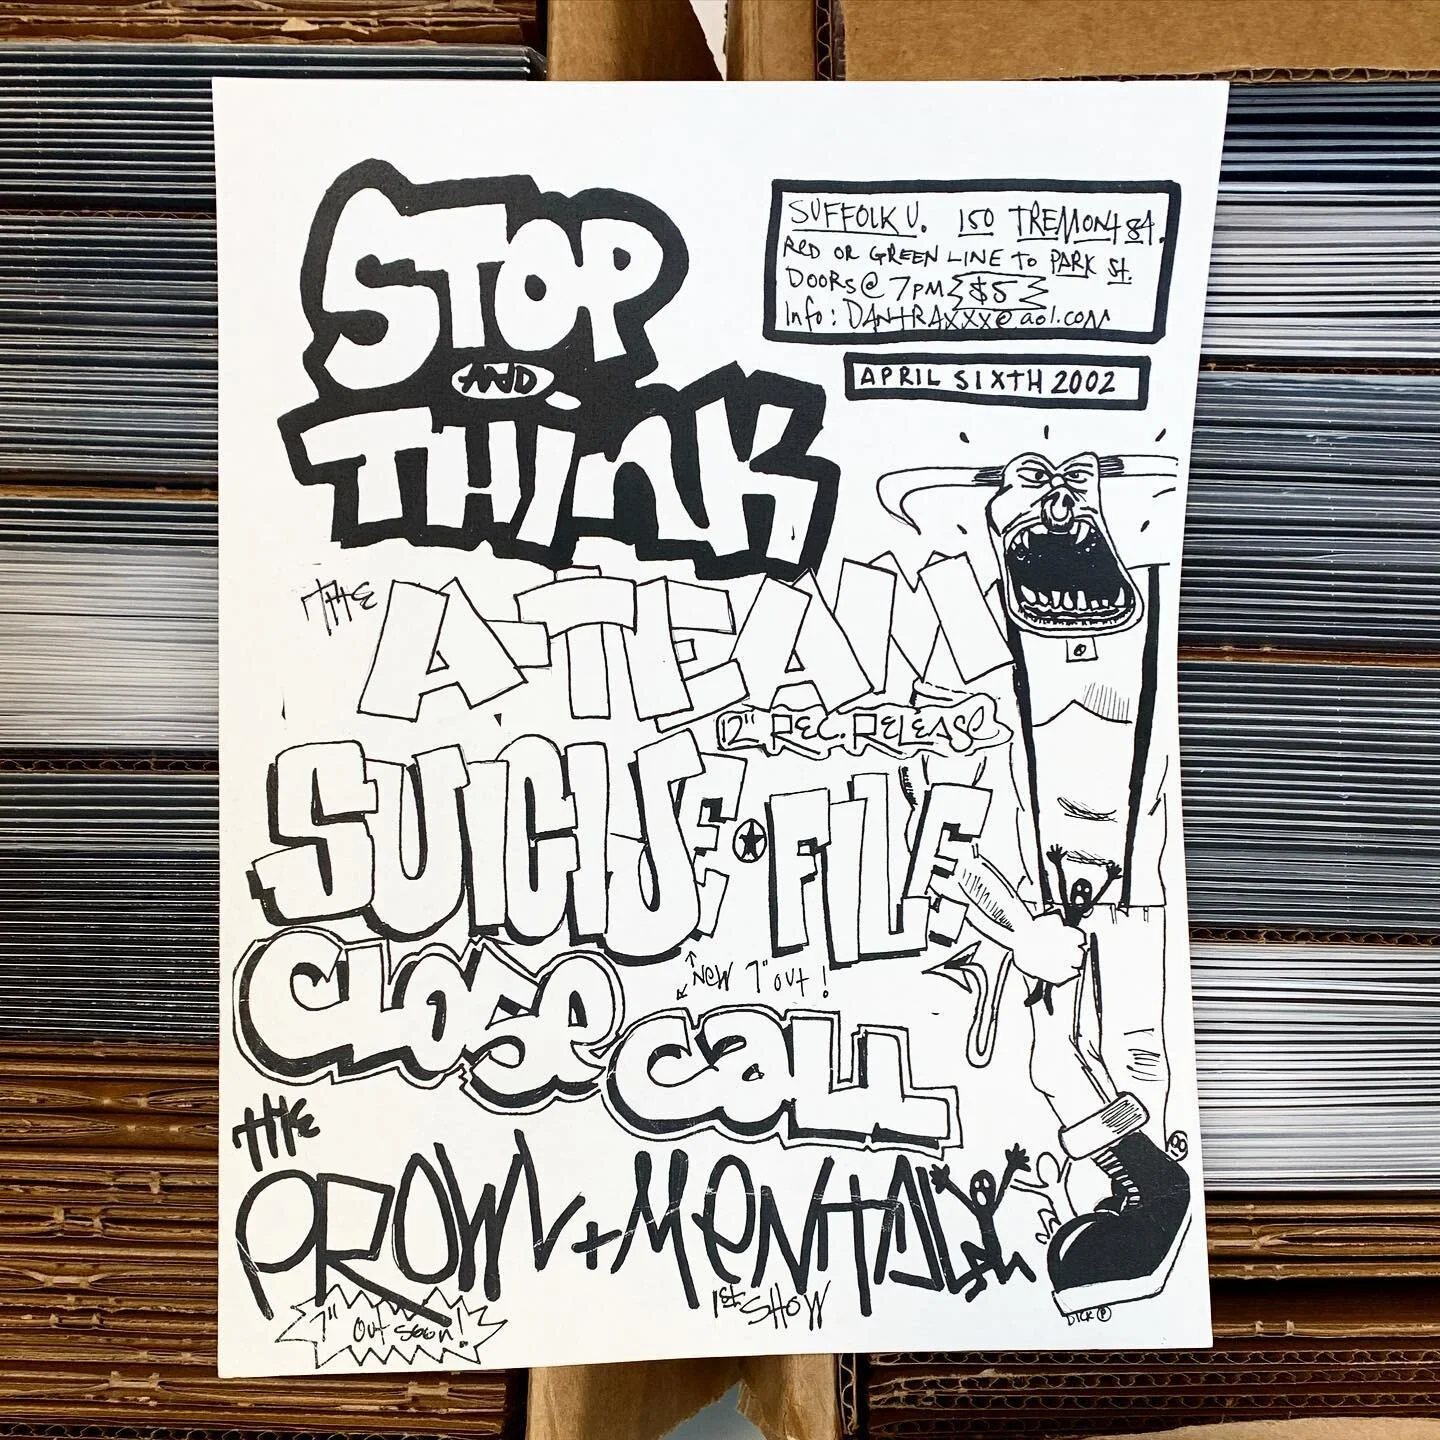 STOP
AND
THINK
SUFFOLK U. 150 TREMONT St.
RED OR GREEN LINE TO PARK St.
DOORS @ 7PM $5
Info: DANTRAXXX@aol.com
APRIL SIXTH 2002
THE A-TEAM
12" REC. RELEASE
SUICIDE FILE
NEW 7" OUT!
CLOSE CALL
THE
PROWL + MENTAL
7" Out soon!
1st SHOW
DICK P